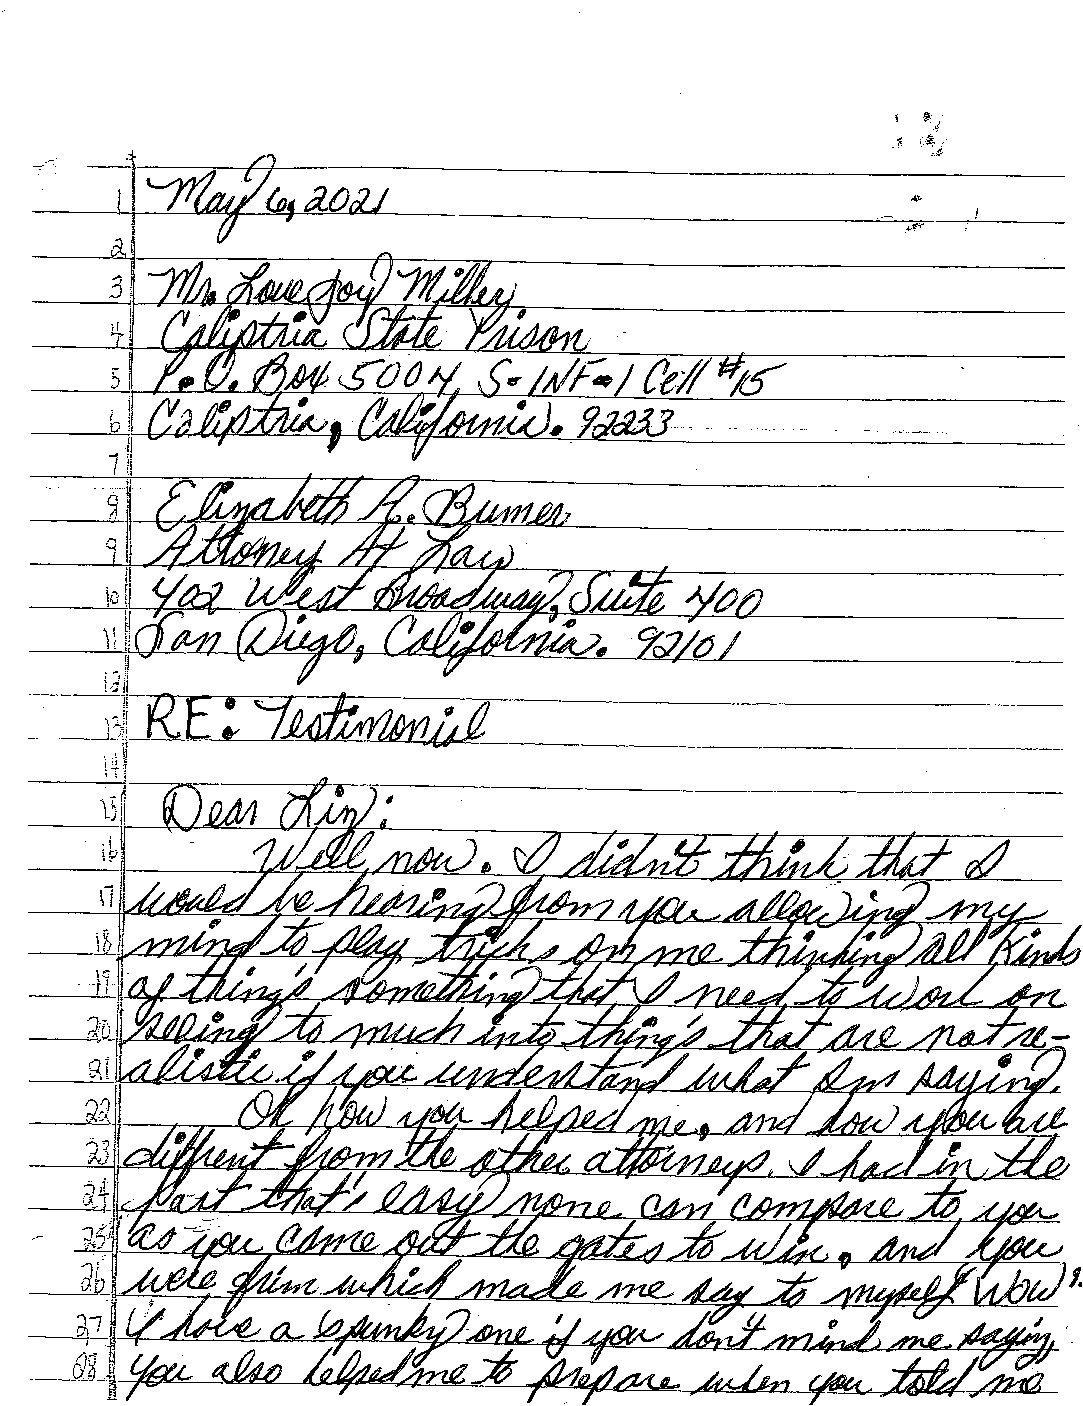 1 May 6, 2021
2
3 Mr. Love Joy Miller
4 Caliptria State Prison
5 P.O. Box 5004, S-INF-1 Cell #15
6 Caliptria, California. 92233
7
8 Elizabeth A. Bumer
9 Attorney At Law
10 402 West Broadway, Suite 400
11 San Diego, California. 92101
12
13 RE: Testimonial
14
15 Dear Liz:
16 Well now. I didn't think that I
17 would be hearing from you allowing my
18 mind to play tricks on me thinking all kinds
19 of thing's something that I need to work on
20 seeing to much into thing's that are not re-
21 alistic if you understand what I'm saying.
22 Oh how you helped me, and how you are
23 diffrent from the other attorneys. I had in the
24 past that's easy none can compare to you
25 as you came out the gates to win, and you
26 were firm which made me say to myself "Wow".
27 I have a spunky one if you don't mind me saying,
28 you also helped me to prepare when you told me